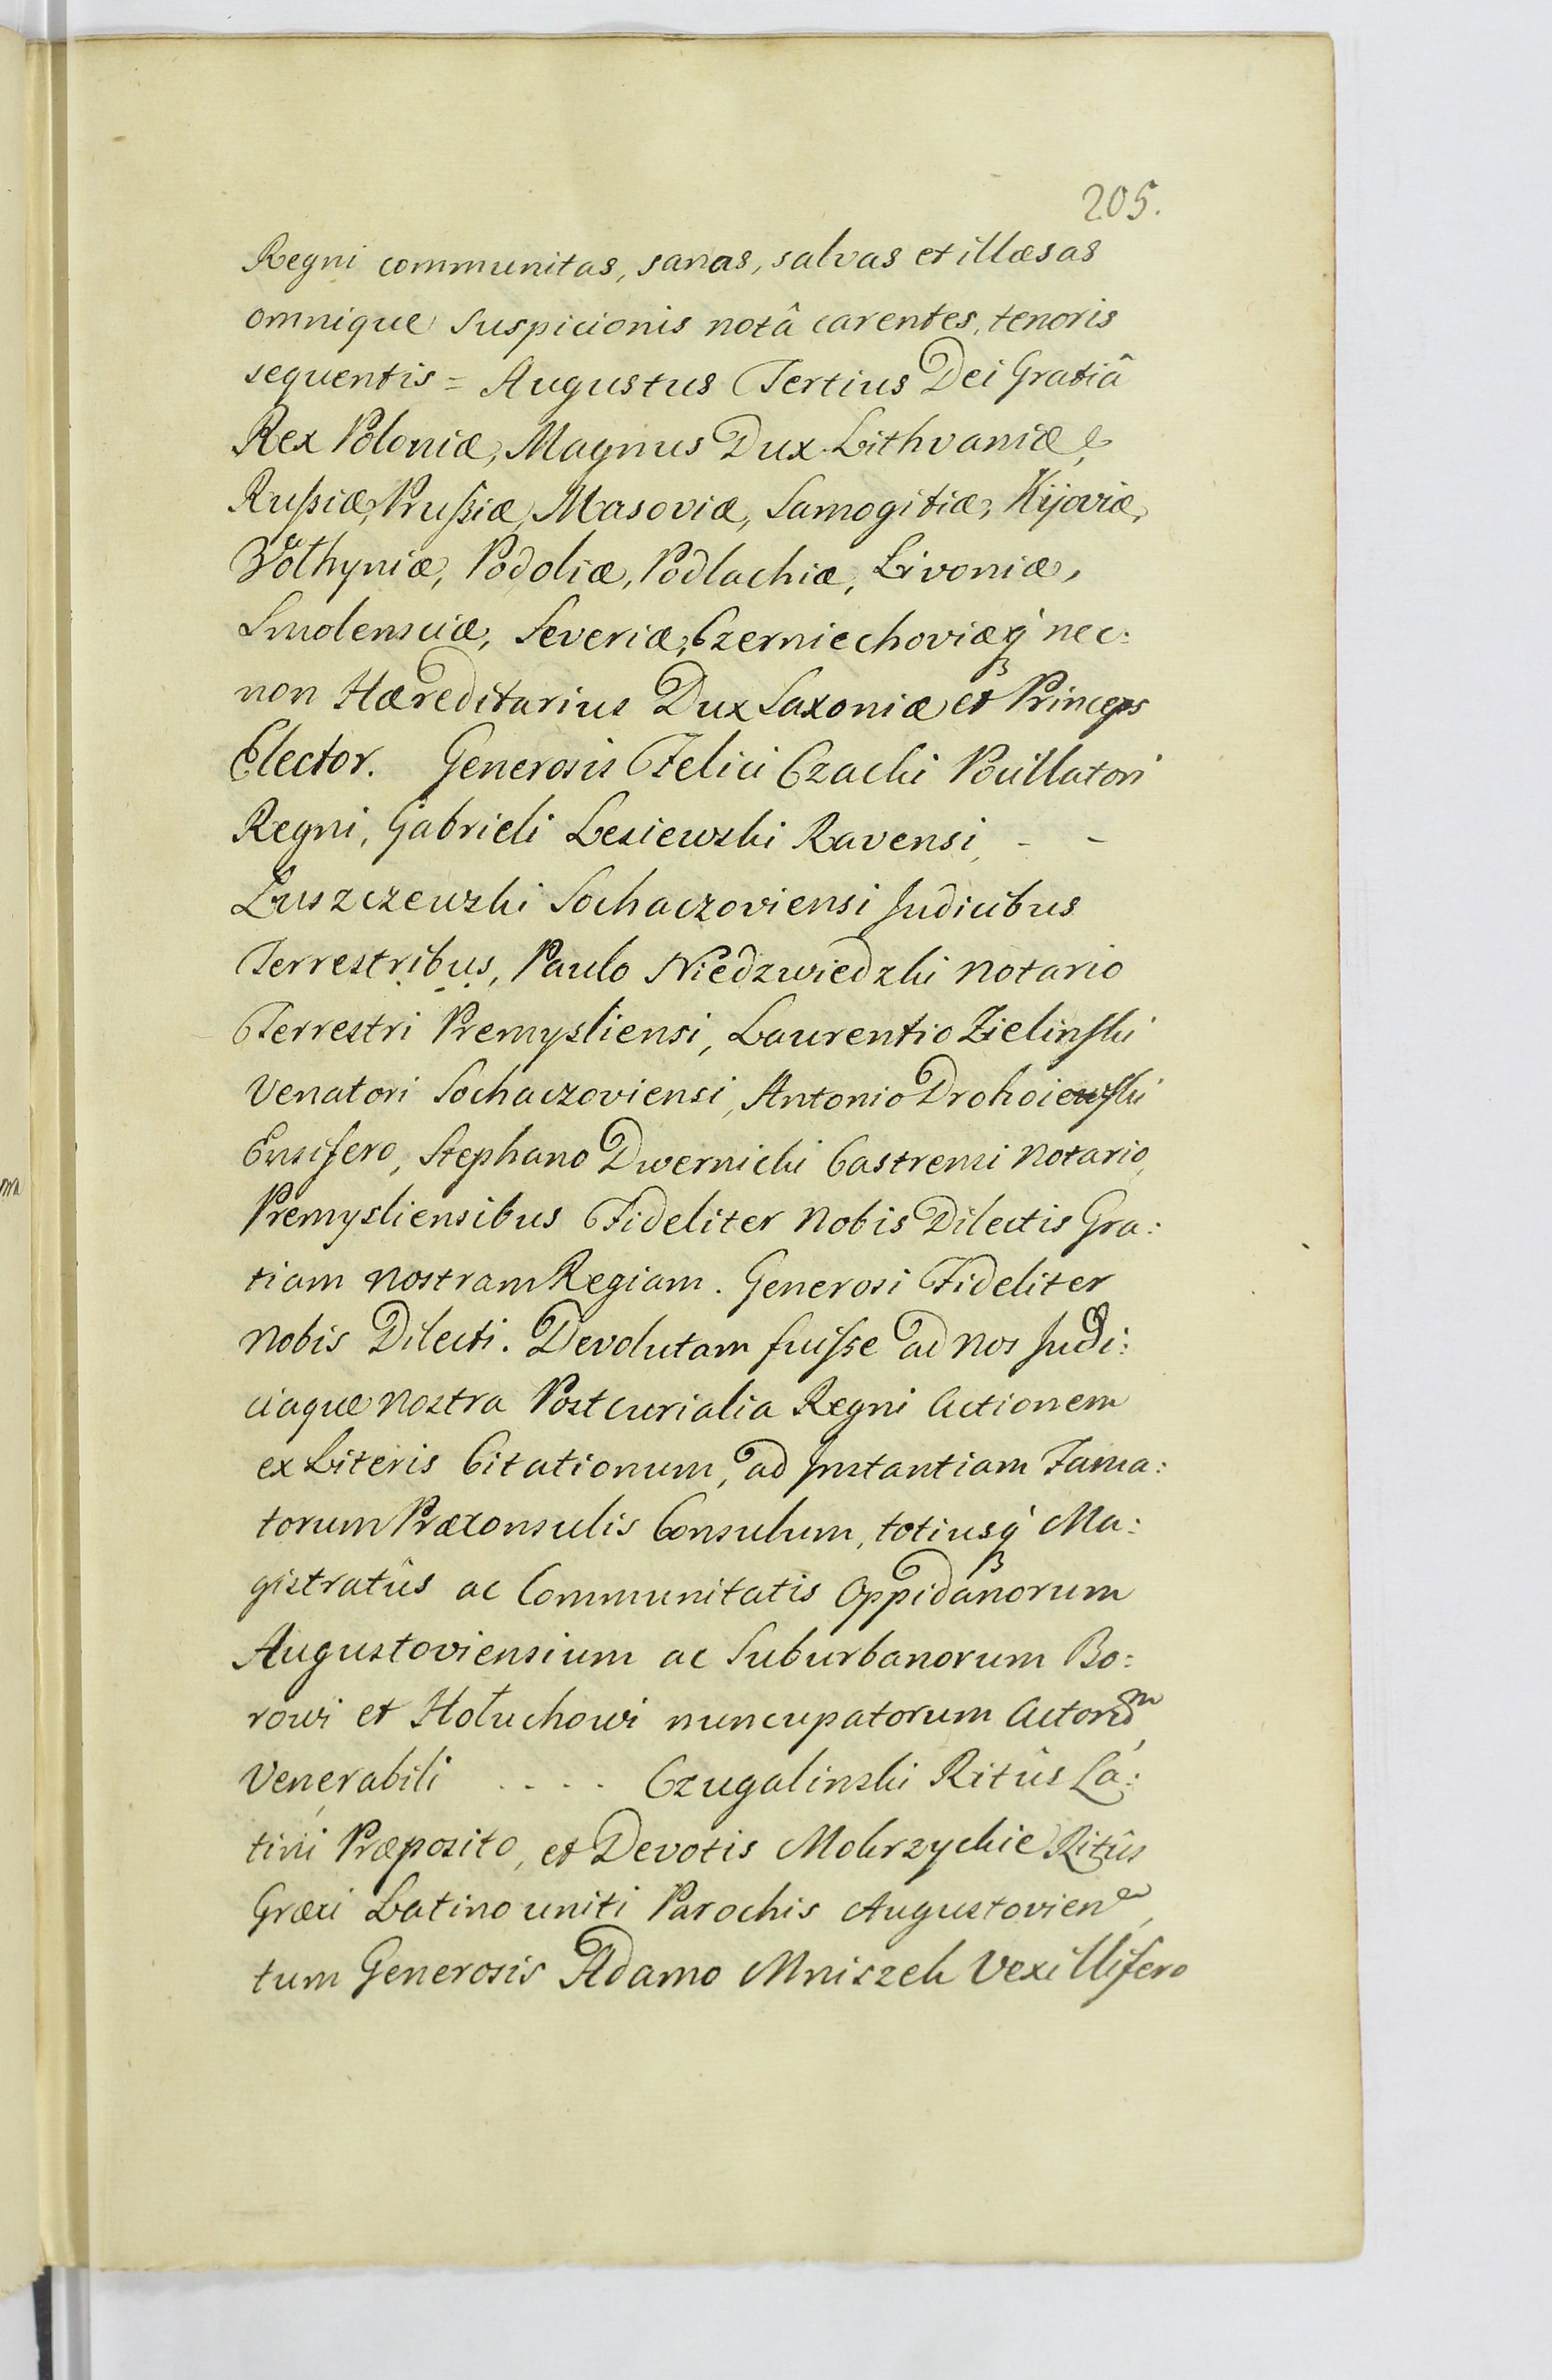 205.
Regni communitas, sanas, salvas et illæsas
omnique suspicionis notâ carentes, tenoris
sequentis = Augustus Tertius Dei Gratiâ
Rex Poloniæ, Magnus Dux Lithvaniæ,
Rußiæ, Prußiæ, Masoviæ, Samogitiæ, Kijoviæ,
Wołhyniæ, Podoliæ, Podlachiæ, Livoniæ,
Smolensciæ, Severiæ, Czerniechoviæq́ nec:
non Hæreditarius Dux Saxoniæ et Princeps
Elector. Generosis Felici Czacki Pocillatori
Regni, Gabrieli Lesiewski Ravensi, - -
Łuszczewski Sochaczoviensi Judicibus
Terrestribus, Paulo Niedzwiedzki Notario
Terrestri Premysliensi, Laurentio Zielinski
Venatori Sochaczoviensi, Antonio Drohoiewski
Ensifero, Stephano Dwernicki Castrensi Notario,
Premysliensibus Fideliter Nobis Dilectis Gra:
tiam Nostram Regiam. Generosi Fideliter
Nobis Dilecti. Devolutam fuisse ad Nos Judi:
ciaque Nostra Postcurialia Regni Actionem
ex Literis Citationum, ad Instantiam Fama:
torum Præconsulis Consulum, totiusq́ Ma:
gistratûs ac Communitatis Oppidanorum
Augustoviensium ac Suburbanorum Bo:
rowi et Hołuchowi nuncupatorum Actorũm,
Venerabili .... Czugalinski Ritûs La:
tini Præposito, et Devotis Mokrzyckie Ritûs
Græci Latino uniti Parochis Augustovien,
tum Generosis Adamo Mniszek Vexillifero